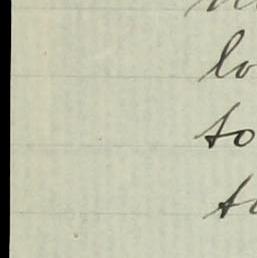 lo
to
to